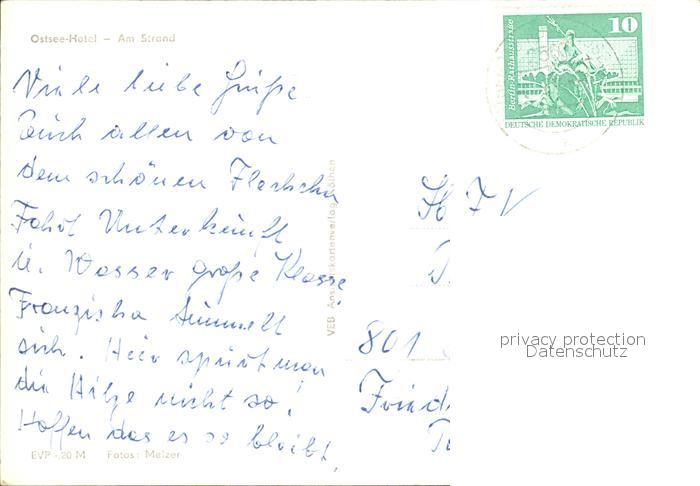 Ostsee-Hotel — Am Strand
Viele liebe Grüße
Euch allen von
dem schönen Fleckchen
Fahrt Unterkunft
u. Wasser große Klasse
Franziska tummelt
sich. Hier spürt man
die Hitze nicht so!
Hoffen das es so bleibt,
EVP -,20 M Fotos: Melzer
VEB Ansichtskartenverlag Köthen
10
Berlin-Rathausstraße
DEUTSCHE DEMOKRATISCHE REPUBLIK
801
privacy protection
Datenschutz